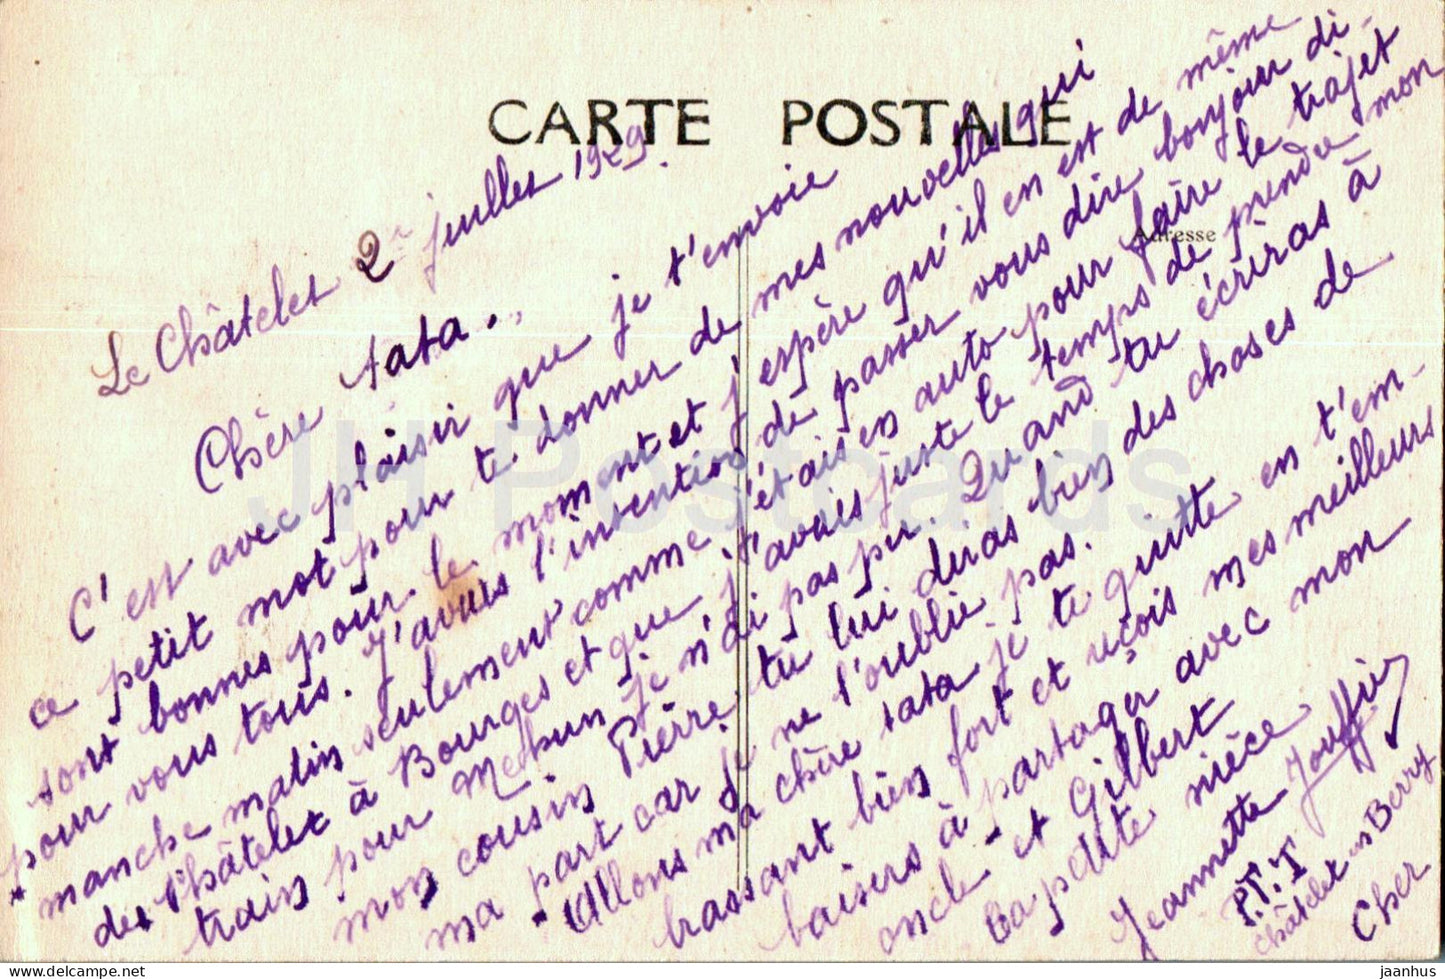 CARTE POSTALE
Adresse
Le Châtelet 2 juillet 1929.
Chère tata.
C'est avec plaisir que je t'envoie
ce petit mot pour te donner de mes nouvelles qui
sont bonnes pour le moment et j'espère qu'il en est de même
pour vous tous. J'avais l'intention de passer vous dire bonjour di-
manche matin seulement comme j'étais en auto pour faire le trajet
des Châtelet à Bourges et que j'avais juste le temps de prendre mon
train pour Mehun je n'ai pas pu. Quand tu écriras à
mon cousin Pierre tu lui diras bien des choses de
ma part car je ne l'oublie pas.
Allons ma chère tata je te quitte en t'em-
brassant bien fort et reçois mes meilleurs
baisers à partager avec mon
oncle et Gilbert
Ta petite nièce
Jeannette
P.T.T
Châtelet en Berry
Cher
JH Postcards
jaanhus
delcampe.net